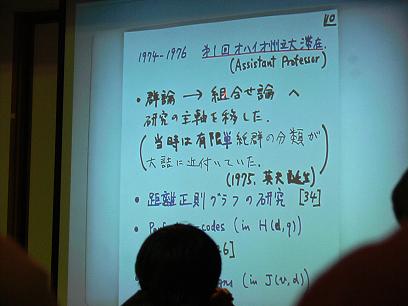 10
1974-1976 第1回オハイオ州立大滞在.
(Assistant Professor)
• 群論 → 組合せ論 へ
研究の主軸を移した.
(当時は有限単純群の分類が
大詰に近付いていた.)
(1975, 英夫
• 距離正則グラフの研究 [34]
codes (in H(d,q)
6]
(in J(v,d)